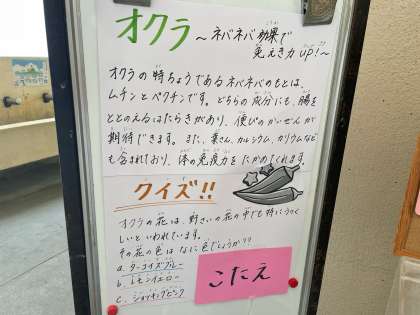 オクラ ～ネバネバ効果で
免えき力UP!～
オクラの特ちょうであるネバネバのもとは、
ムチンとペクチンです。どちらの成分にも、腸を
ととのえるはたらきがあり、便ぴのかいぜんが
期待できます。また、葉さん、カルシウム、カリウムなど
も含まれており、体の免疫力をたかめてくれます。
クイズ!!
オクラの花は、野さいの花の中でも特にうつく
しいといわれています。
その花の色はなに色でしょうか??
a. ターコイズブルー
b. レモンイエロー
c. ショッキングピンク
こたえ